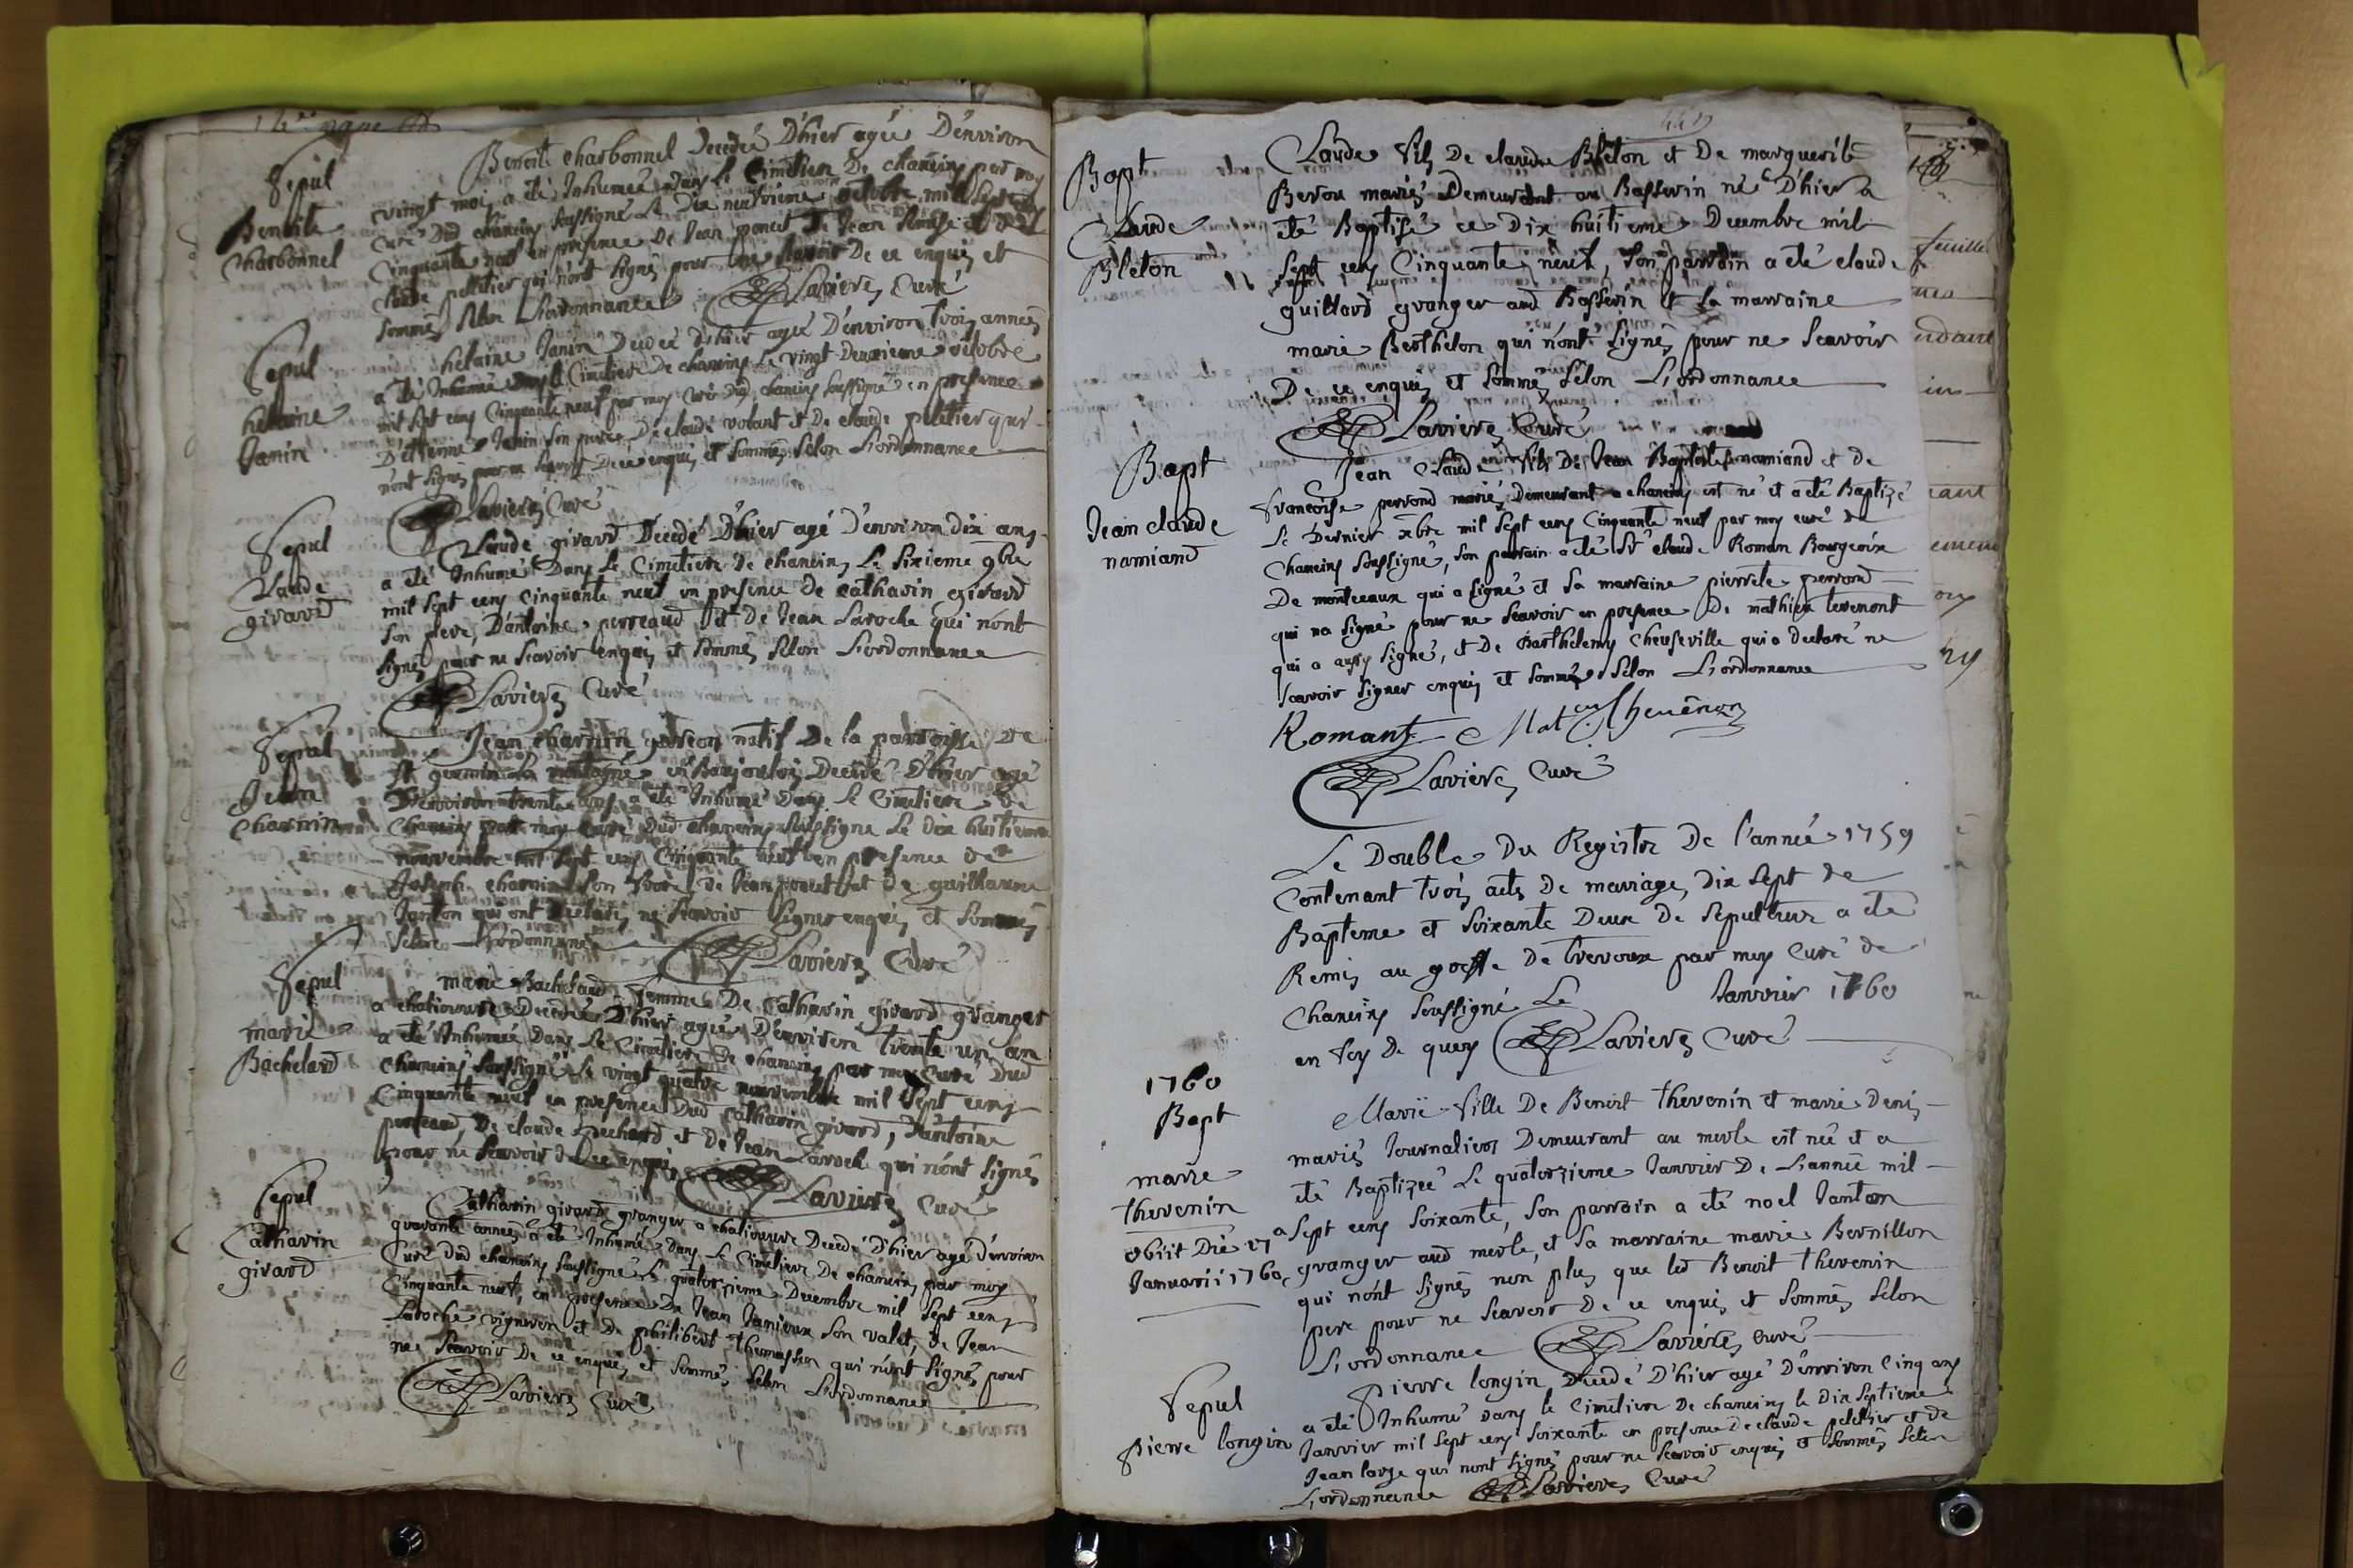 Sepul
Benoite
Charbonnel
Benoite charbonnel Decedée D'hier agée D'environ
vingt mois a été Inhumée dans Le Cimetiere De chaneins par moy
Curé Dud chaneins soussigné Le Dix neufvieme octobre mil sept cens
Cinquante neuf en presence De Jean poncet De Jean et De
Claude pelletier qui n'ont signés pour ne scavoir De ce enquis et
sommés selon L'ordonnance Lavieres Curé
Sepul
helaine
Janin
helaine Janin Decedée d'hier agée D'environ trois années
a été Inhumée dans le Cimetiere De chaneins Le vingt Deuxieme octobre
mil sept cens Cinquante neuf par moy Curé Dud chaneins soussigné en presence
D'etienne Janin son pere, De claude volant et De claude peletier qui
n'ont signés pour ne scavoir De ce enquis et sommés selon L'ordonnance
Lavieres Curé
Sepul
Claude
girard
Claude girard Decedé D'hier agé D'environ dix ans
a été Inhumé Dans Le Cimetiere de chaneins Le sixieme 9bre
mil sept cens Cinquante neuf en presence de Catharin girard
son pere, D'antoine perreaud et De Jean Laroche qui n'ont
signés pour ne scavoir enquis et sommés selon L'ordonnance
Lavieres Curé
Sepul
Jean
Charnin
Jean charnin garcon natif De la parroisse De
st germain la montagne en Baujoulois Decedé D'hier agé
D'environ trente ans a été Inhumé Dans Le Cimetiere De
Chaneins par moy Curé Dud chaneins soussigné Le dix huitieme
nouvembre mil sept cens Cinquante neuf en presence de
Joseph charnin son frere, de Jean poncet et de guillaume
Janton qui ont declarés ne scavoir signer enquis et sommés
selon L'ordonnance Lavieres Curé
Sepul
marie
Bachelard
marie Bachelard femme De Catharin girard granger
a chatiouure Decedée D'hier agée D'environ trente un an
a été Inhumée Dans Le Cimetiere De chaneins par moy Curé Dud
chaneins soussigné Le vingt quatre nouvembre mil sept cens
Cinquante neuf en presence Dud Catharin girard, D'antoine
perreaud, De claude et De Jean Laroche qui n'ont signés
pour ne scavoir De ce enquis Lavieres Curé
Sepul
Catharin
girard
Catharin girard granger a chatiouure Decedé D'hier agé D'environ
quarante années a été Inhumé Dans Le Cimetiere De chaneins par moy
Curé Dud chaneins soussigné Le quatorzieme Decembre mil sept cens
Cinquante neuf, en presence De Jean Janieux son valet, De Jean
Laroche vigneron et De philibert thomasson qui n'ont signés pour
ne scavoir De ce enquis et sommés selon L'ordonnance
Lavieres Curé
Bapt
Claude
Bleton
Claude fils De claude Bleton et De marguerite
Berou mariés Demeurant au Basserin né D'hier a
été Baptisé ce Dix huitieme Decembre mil
sept cens Cinquante neuf, son parrain a été claude
guillard granger aud Basserin et La marraine
marie Berthelon qui n'ont signés pour ne scavoir
De ce enquis et sommés selon L'ordonnance
Lavieres Curé
Bapt
Jean claude
namiand
Jean Claude fils De Jean Baptiste namiand et de
francoise perrond mariés Demeurant a chaneins est né et a été Baptizé
Le Dernier xbre mil sept cens Cinquante neuf par moy curé de
Chaneins soussigné, son parrain a été Sr claude Roman Bourgeoix
De montceaux qui a signé et sa marraine pierrete perrond
qui na signé pour ne scavoir en presence De mathieu tevenont
qui a aussy signé, et De Barthelemy Cheuseville qui a declaré ne
scavoir signer enquis et sommés selon L'ordonnance
Romant Mat Thevenon
Lavieres Curé
Le Double Du Registre De l'année 1759
Contenant trois acts De mariage, dix sept de
Bapteme et soixante Deux De sepulture a été
Remis au greffe De trevoux par moy Curé de
Chaneins soussigné Le Janvier 1760
en foy De quoy Lavieres Curé
1760
Bapt
marie
thevenin
obiit Die 17a
Januarii 1760
Marie fille De Benoit thevenin et marie denis
mariés Journaliers Demeurant au merle est née et a
été Baptizée Le quatorzieme Janvier De L'année mil
sept cens soixante, son parrain a été noel Janton
granger aud merle, et sa marraine marie Bernillon
qui n'ont signés non plus que led Benoit thevenin
pere pour ne scavoir De ce enquis et sommés selon
L'ordonnance Lavieres curé
Sepul
pierre longin
pierre longin Decedé D'hier agé D'environ Cinq ans
a été Inhumé Dans le Cimetiere De chaneins le Dix septieme
Janvier mil sept cens soixante en presence De claude peletier et de
Jean large qui nont signés pour ne scavoir enquis et sommés selon
L'ordonnance Lavieres Curé